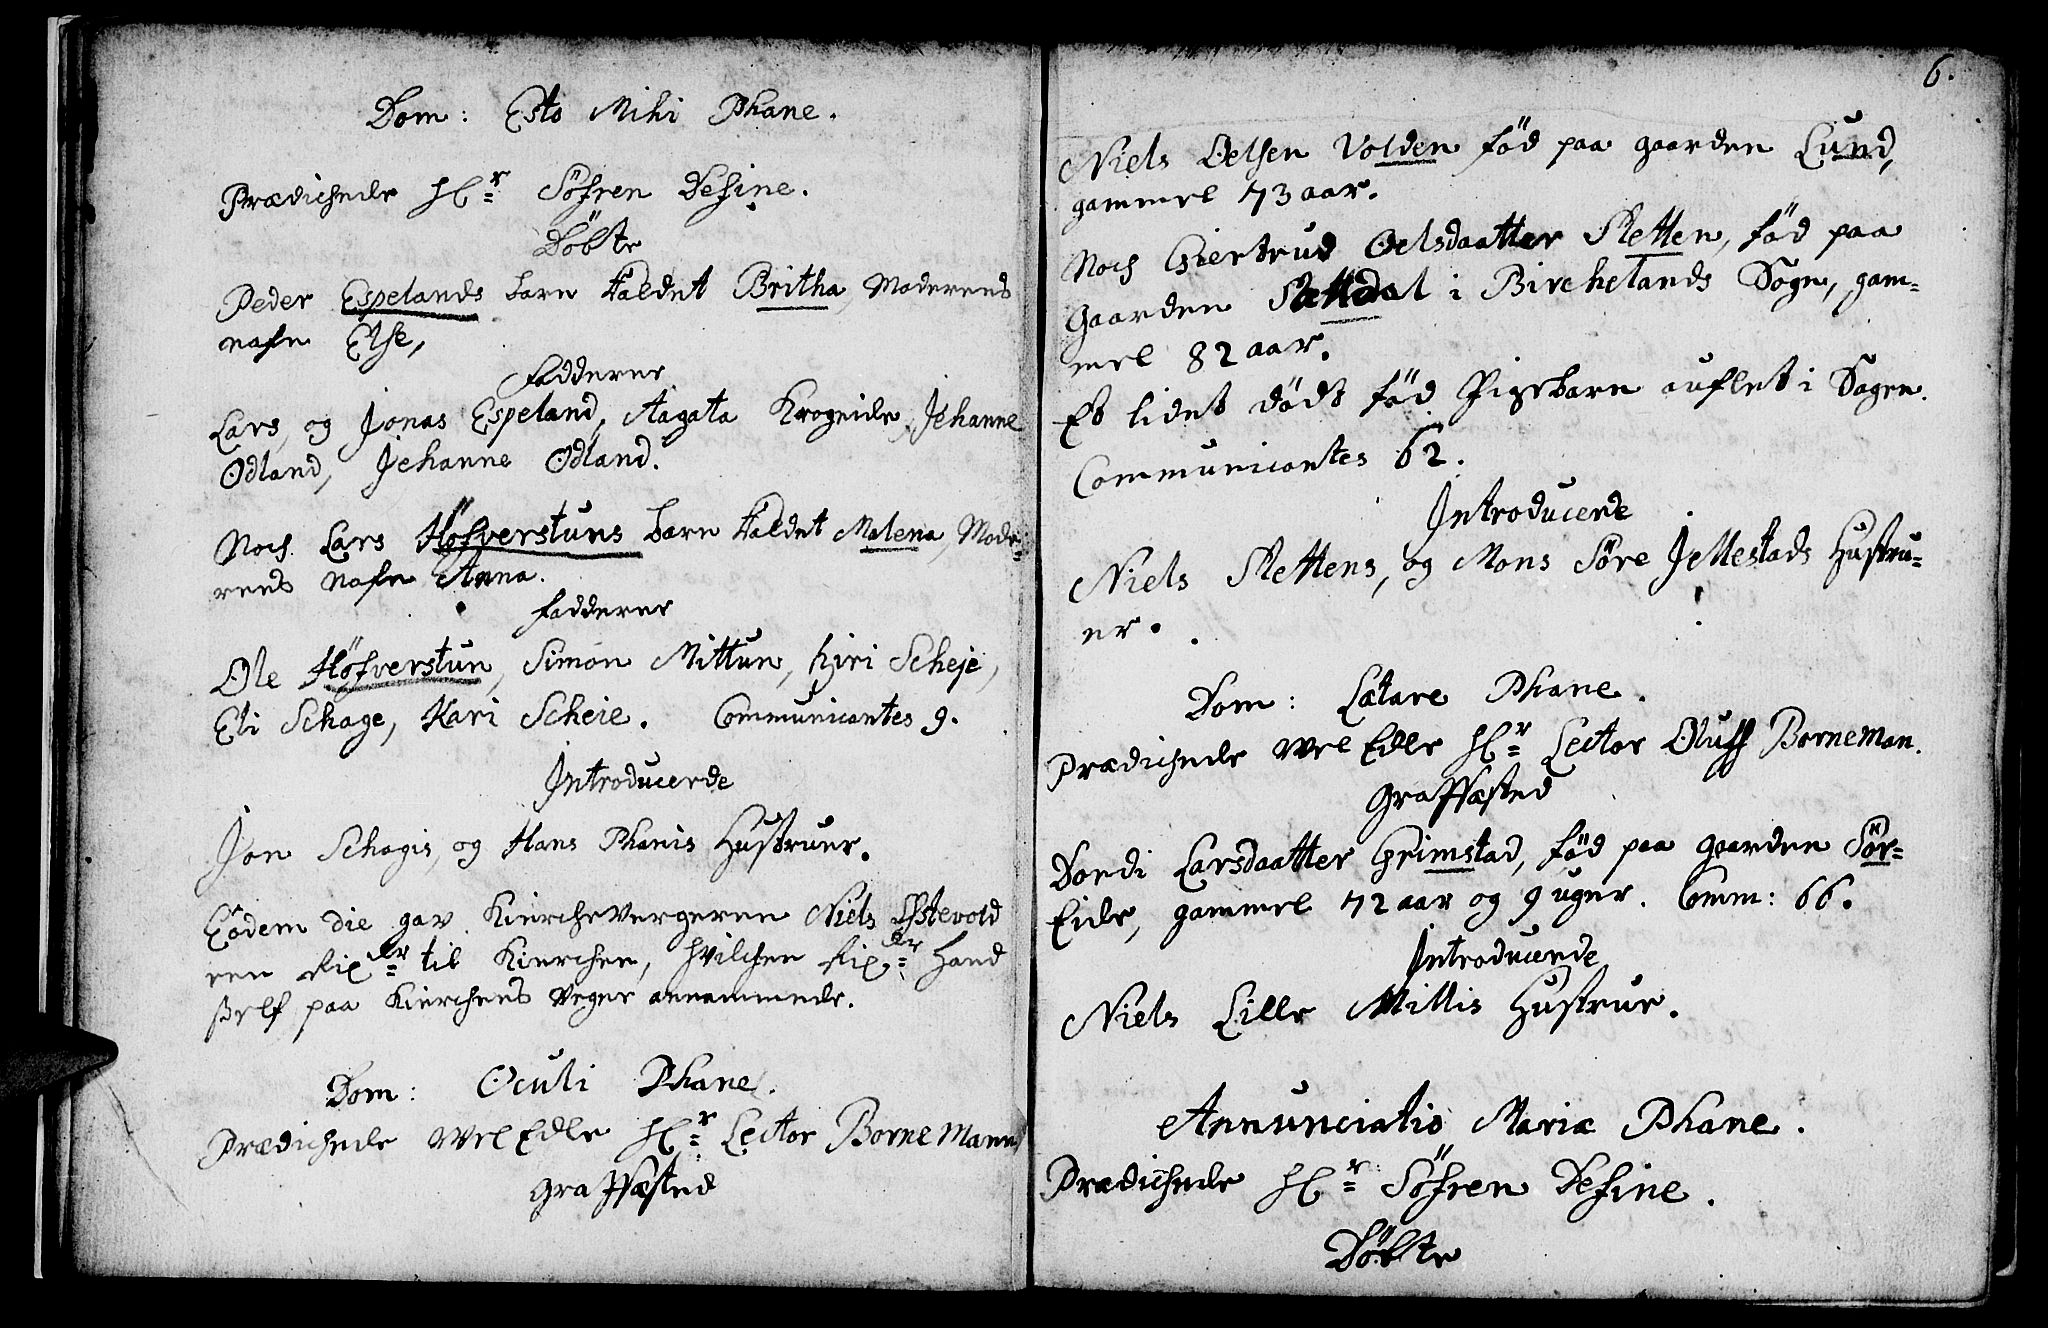 Dom: Esto Mihi Phane.
Prædichede Hr Söfren Define.
Döbte
Peder Espelands barn kaldet Britha, Moderens
nafn Else,
Fadderer
Lars, og Jonas Espeland, Aagata Krogeide, Jehanne
Ødland, Jehanne Ødland.
Noch Lars Höfverstuns barn kaldet Malena, Mode-
rens nafn Anna.
Fadderer
Ole Höfverstun, Simon Mittun, Kiri Scheje,
Eli Schage, Kari Scheie. Communicantes 9.
Introducerde
Jon Schagis, og Hans Phanis Hustruer.
Eodem die gav Kierchevergeren Niels Østevold
een Rixdr til Kierchen, hvilchen Rixdr hand
self paa Kierchens vegne annammede.
Dom: Oculi Phane.
Prædichede WelEdle Hr Lector Bornemann
Graffæsted
6.
Niels Oelsen Volden fød paa gaarden Lund,
gammel 73 aar.
Noch Giertrud Oelsdaatter Sletten, fød paa
Gaarden Slettdal i Birchelands Sogn, gam-
mel 82 aar.
Et lidet dødt fød Pigebarn auflet i Sogen.
Communicantes 62.
Introducerde
Niels Slettens, og Mons Söre Jellestads Hustru-
er.
Dom: Lætare Phane.
Prædichede WelEdle Hr Lector Oluff Borneman.
Graffæsted
Dordi Larsdaatter Grimstad, fød paa gaarden Sör-
Eide, gammel 72 aar og 9 uger. Comm: 66.
Introducerde
Niels Lille Millis Hustrue.
Annunciatio Mariæ Phane.
Prædichede Hr Söfren Define.
Döbte